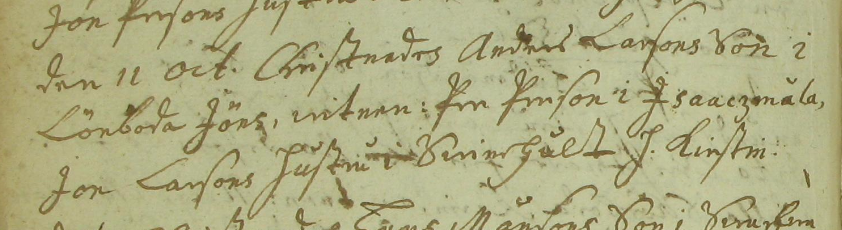 Jon Persons Hustru
den 11 Oct. Christnades Anders Larsons Son i
Lönboda Jöns, vitnen: Per Person i Isaaczmåla,
Jon Larsons Hustru i Svinehult H. Kirstin.
Måns Son i